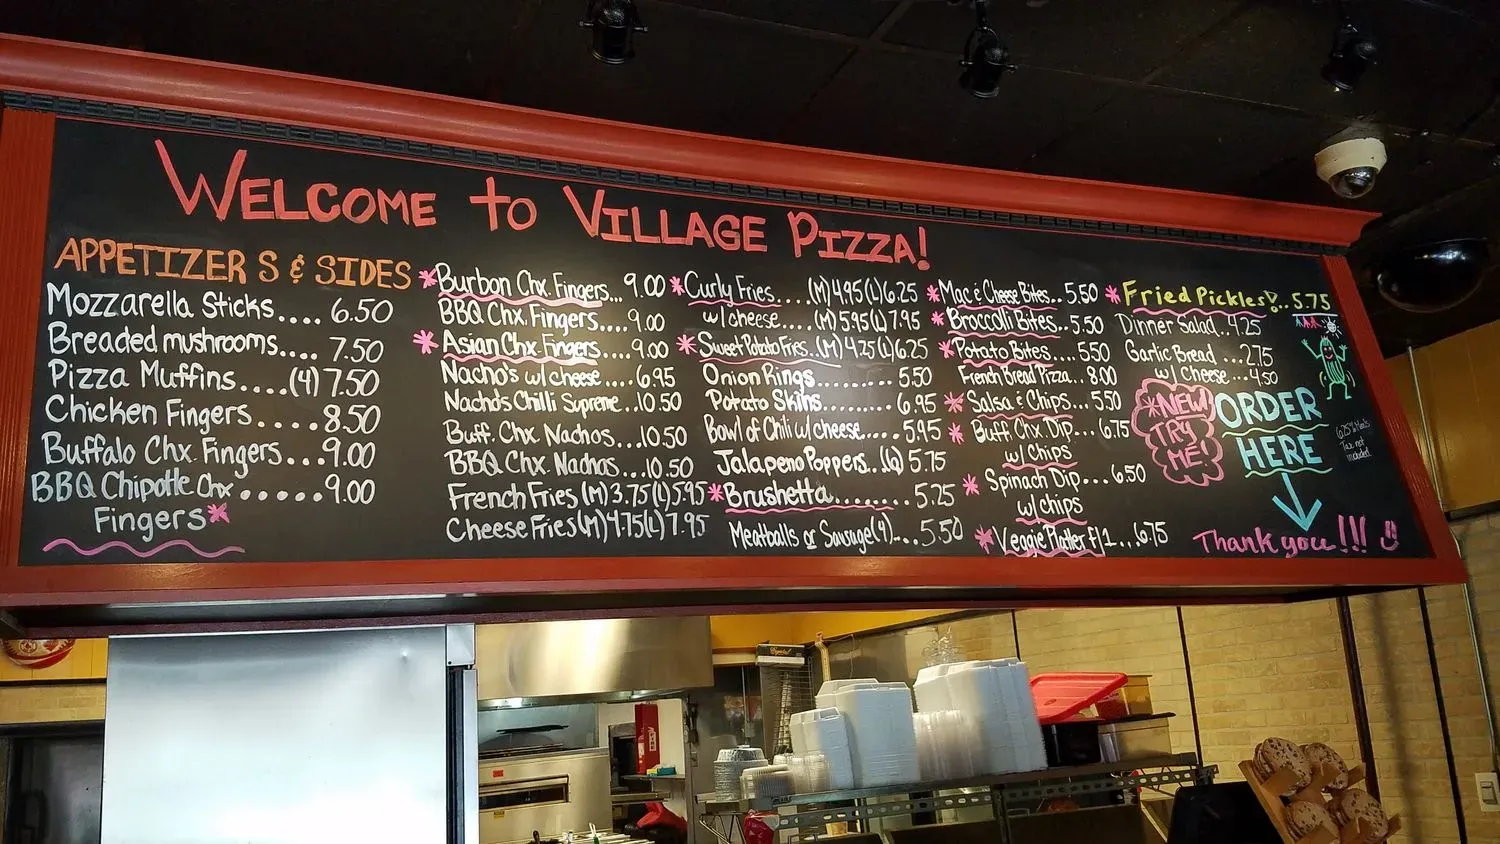 WELCOME to VILLAGE PIZZA!
APPETIZERS & SIDES
Mozzarella Sticks.... 6.50
Breaded mushrooms.... 7.50
Pizza Muffins....(4) 7.50
Chicken Fingers.... 8.50
Buffalo Chx. Fingers... 9.00
BBQ Chipotle Chx ..... 9.00
Fingers*
*Burbon Chx. Fingers... 9.00
BBQ Chx. Fingers.... 9.00
*Asian Chx. Fingers.... 9.00
Nacho's w/ cheese .... 6.95
Nacho's Chilli Supreme.. 10.50
Buff. Chx Nachos... 10.50
BBQ Chx. Nachos... 10.50
French Fries (M) 3.75 (L) 5.95
Cheese Fries (M) 4.75 (L) 7.95
*Curly Fries.... (M) 4.95 (L) 6.25
w/ cheese.... (M) 5.95 (L) 7.95
*Sweet Potato Fries..(M) 4.25 (L) 6.25
Onion Rings......... 5.50
Potato Skins......... 6.95
Bowl of Chili w/ cheese..... 5.95
Jalapeno Poppers..(6) 5.75
*Brushetta......... 5.25
Meatballs or Sausage (4)... 5.50
*Mac & Cheese Bites.. 5.50
*Broccoli Bites.. 5.50
*Potato Bites... 5.50
French Bread Pizza... 8.00
*Salsa & Chips... 5.50
*Buff. Chx. Dip... 6.75
w/ Chips
*Spinach Dip... 6.50
w/ chips
*Veggie Platter f/1... 6.75
*Fried Pickles!.. 5.75
Dinner Salad.. 4.25
Garlic Bread ... 2.75
w/ Cheese ... 4.50
*NEW!
TRY
ME!
ORDER
HERE
Tax not
included
Thank you!!!